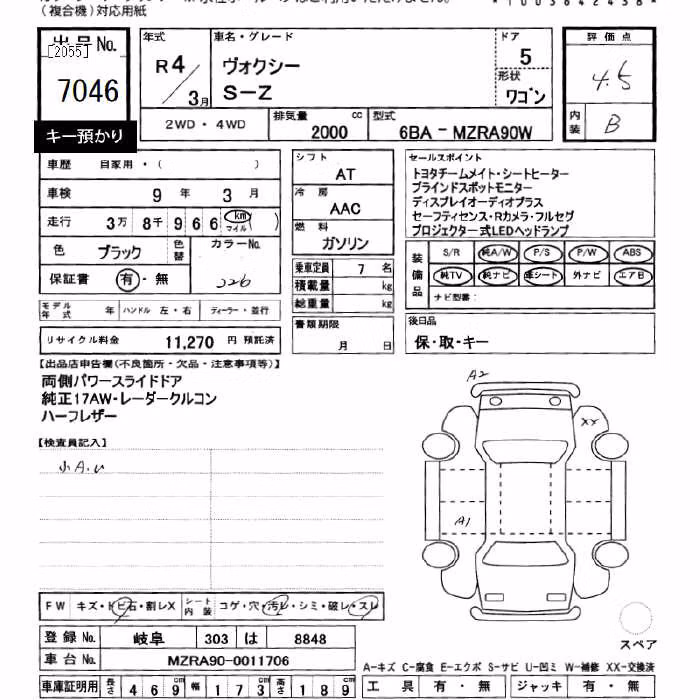 (複合機)対応用紙
出品No.
[2055]
7046
キー預かり
年式
R4/3月
車名・グレード
ヴォクシー
S-Z
ドア
5
形状
ワゴン
評価点
4.5
内装
B
2WD・4WD
排気量 cc
2000
型式
6BA-MZRA90W
車歴 自家用・( )
車検 9年 3月
走行 3万 8千 9 6 6 km マイル ( )
色 ブラック 色替
カラーNo.
226
保証書 有・無
モデル年式 年 ハンドル 左・右 ディーラー・並行
リサイクル料金 11,270 円 預託済
シフト
AT
冷房
AAC
燃料
ガソリン
乗車定員 7 名
積載量 kg
総重量 kg
書類期限
月 日
セールスポイント
トヨタチームメイト・シートヒーター
ブラインドスポットモニター
ディスプレイオーディオプラス
セーフティセンス・Rカメラ・フルセグ
プロジェクター式LEDヘッドランプ
装備品
S/R 純A/W P/S P/W ABS
純TV 純ナビ 革シート 外ナビ エアB
ナビ型番:
後日品
保・取・キー
【出品店申告欄(不良箇所・欠品・注意事項等)】
両側パワースライドドア
純正17AW・レーダークルコン
ハーフレザー
【検査員記入】
小A.U
A2
XX
A1
スペア
FW キズ・トビ石・割レX シート内装 コゲ・穴・汚レ・シミ・破レ・スレ
登録No. 岐阜 303 は 8848
車台No. MZRA90-0011706
車庫証明用 長さ 469cm 幅 173cm 高さ 189cm
A-キズ C-腐食 E-エクボ S-サビ U-凹ミ W-補修 XX-交換済
工具 有・無 ジャッキ 有・無